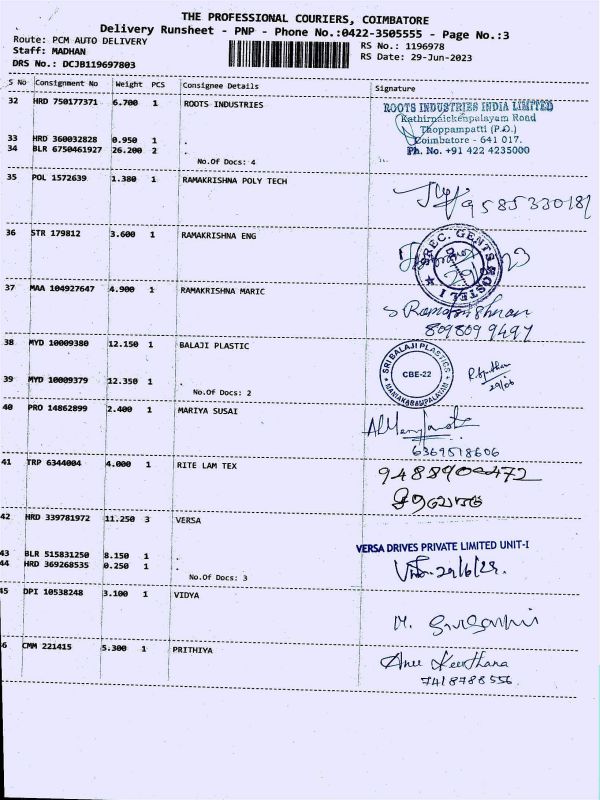 THE PROFESSIONAL COURIERS, COIMBATORE
Delivery Runsheet - PNP - Phone No.:0422-3505555 - Page No.:3
Route: PCM AUTO DELIVERY
RS No.: 1196978
Staff: MADHAN
RS Date: 29-Jun-2023
DRS No.: DCJB119697803
S No Consignment No Weight PCS Consignee Details Signature
32 HRD 750177371 6.700 1 ROOTS INDUSTRIES
ROOTS INDUSTRIES INDIA LIMITED
Kathirnaickenpalayam Road
Thoppampatti (P.O.)
Coimbatore - 641 017.
Ph. No. +91 422 4235000
33 HRD 360032828 0.950 1 .
34 BLR 6750461927 26.200 2 .
No.Of Docs: 4
35 POL 1572639 1.380 1 RAMAKRISHNA POLY TECH
9585330181
36 STR 179812 3.600 1 RAMAKRISHNA ENG
REC. GENTS HOSTEL I
37 MAA 104927647 4.900 1 RAMAKRISHNA MARIC
S Ramakrishnan
8098099497
38 MYD 10009380 12.150 1 BALAJI PLASTIC
SRI BALAJI PLASTICS
CBE-22
MANIAKARAMPALAYAM
29/06
39 MYD 10009379 12.350 1 .
No.Of Docs: 2
40 PRO 14862899 2.400 1 MARIYA SUSAI
6369518606
41 TRP 6344004 4.000 1 RITE LAM TEX
42 HRD 339781972 11.250 3 VERSA
VERSA DRIVES PRIVATE LIMITED UNIT-I
43 BLR 515831250 8.150 1 .
44 HRD 369268535 0.250 1 .
29/6/23.
No.Of Docs: 3
45 DPI 10538248 3.100 1 VIDYA
6 CMM 221415 5.300 1 PRITHIYA
Anu Keerthana
7418788556.